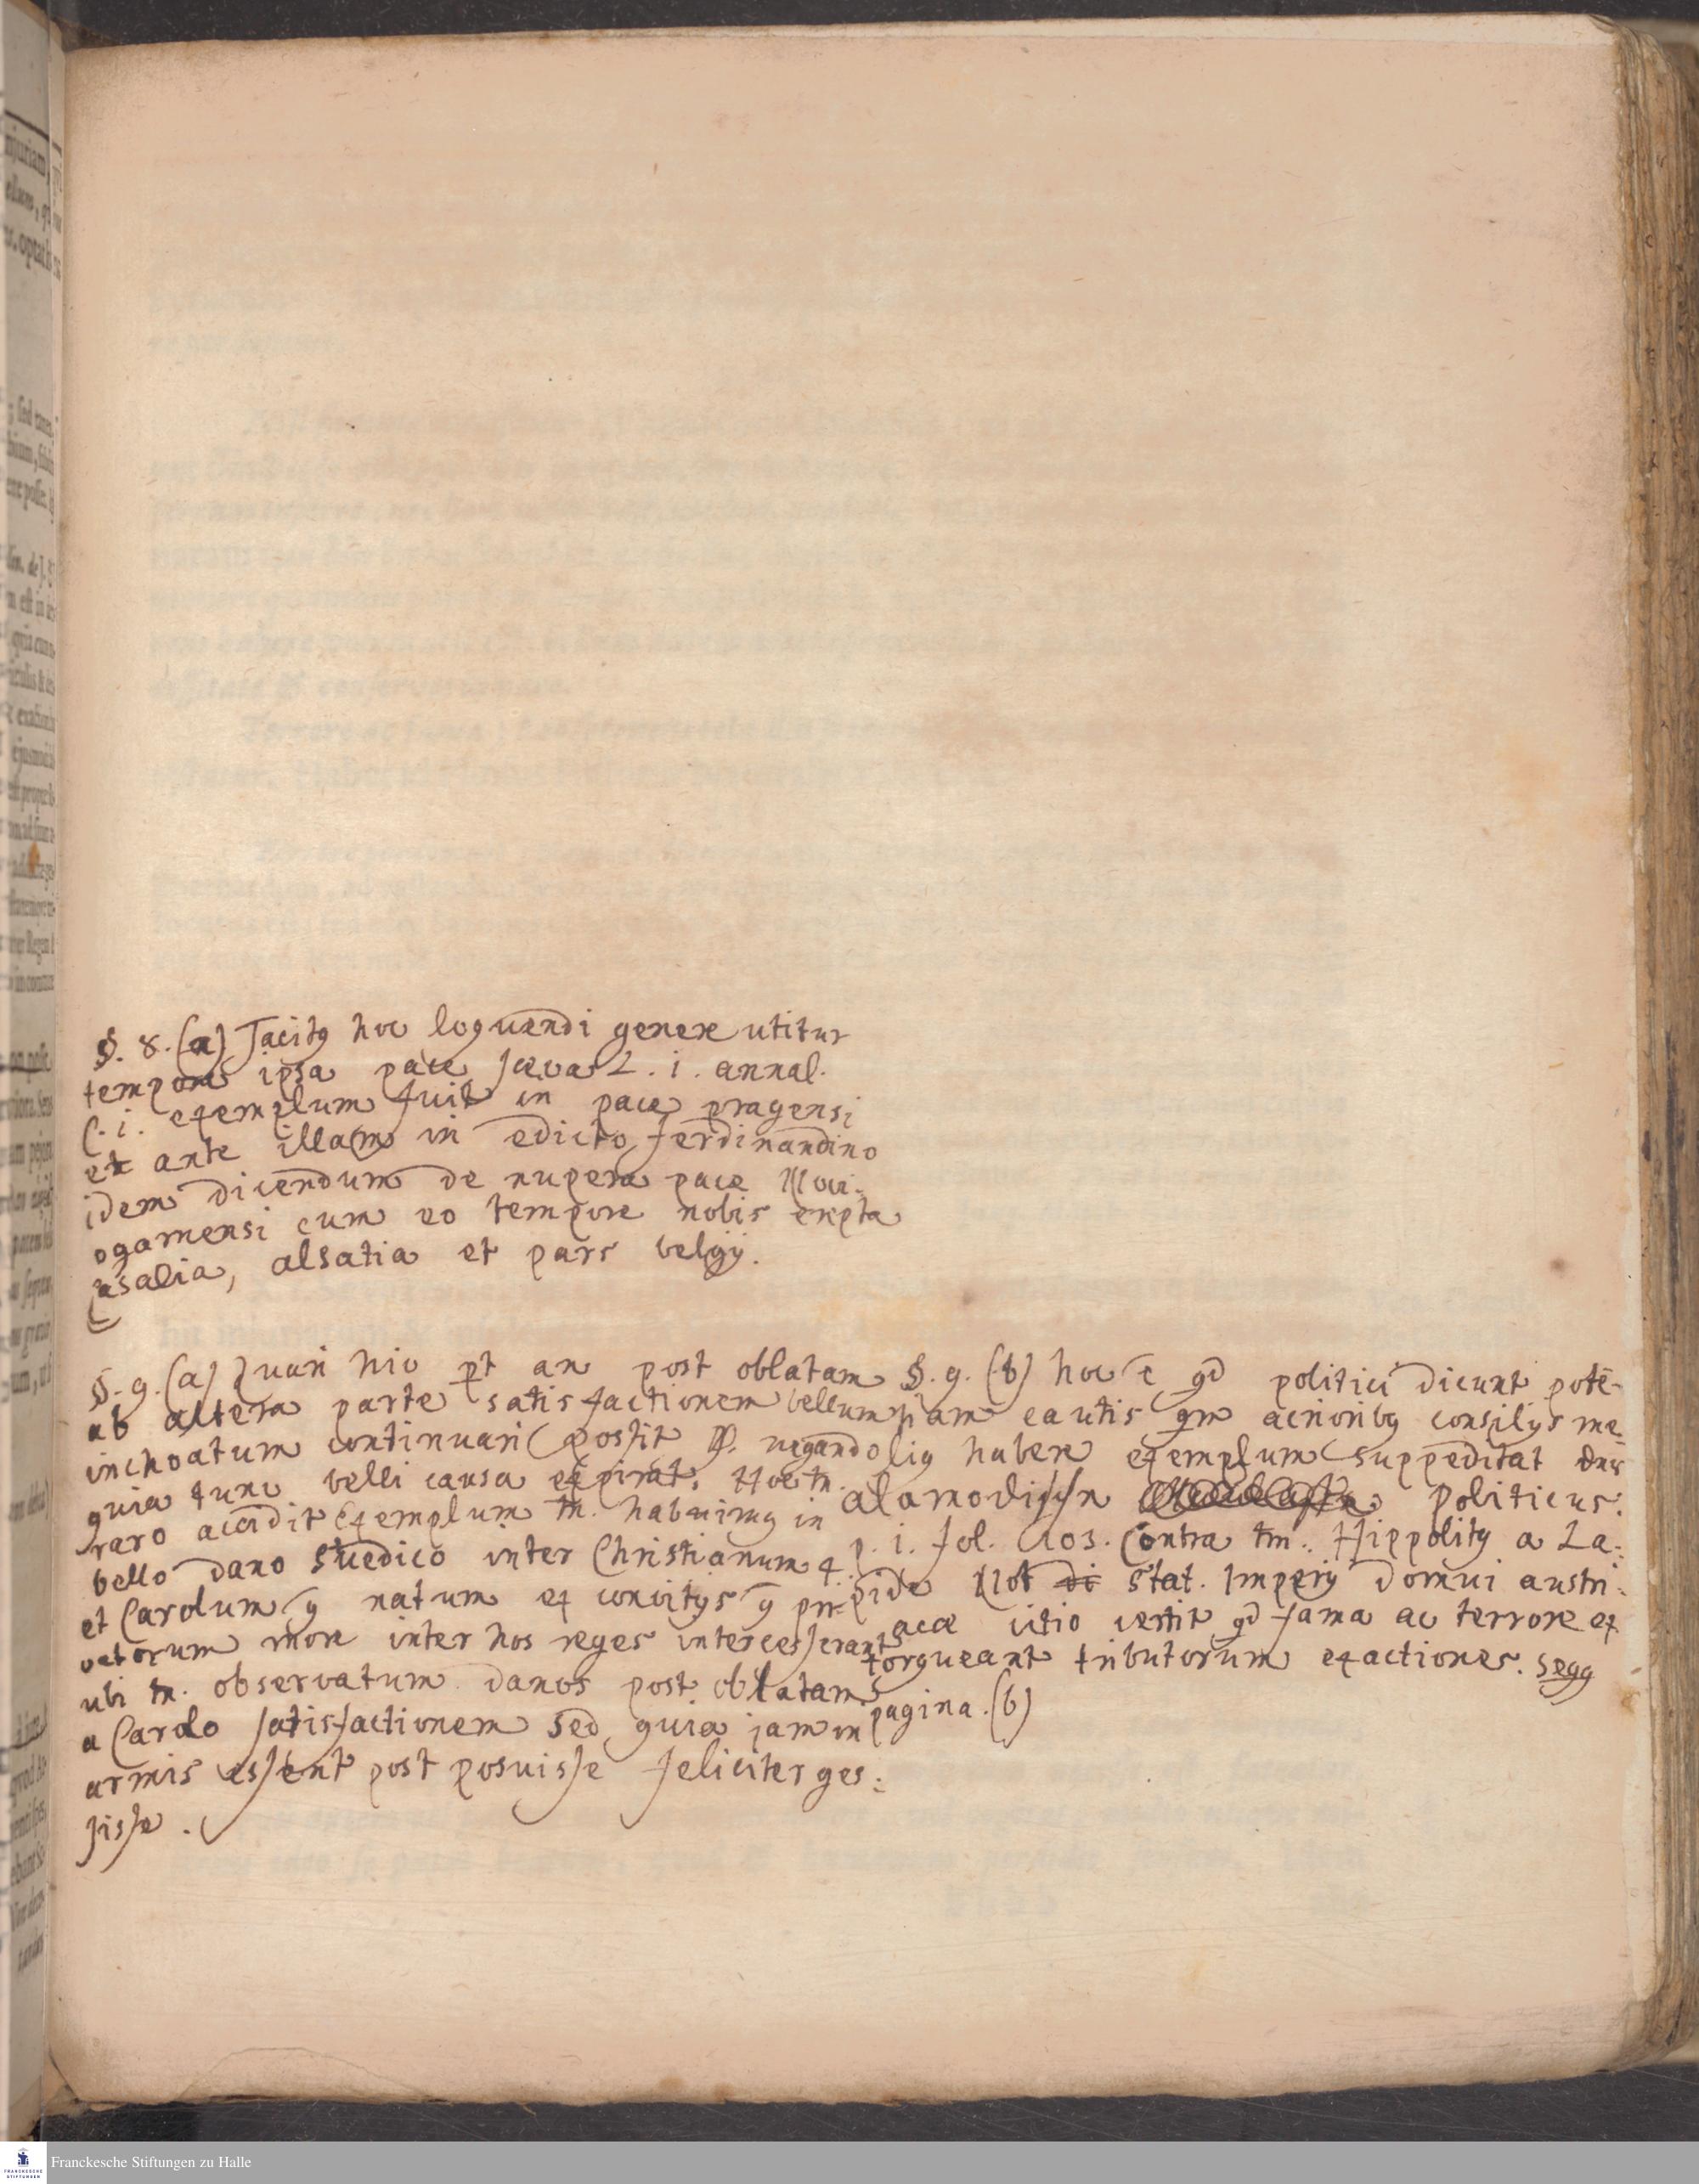 §. 8. (a) Tacitq hoc loquendi genere utitur
tempore ipsa pace sæva L. i. annal.
exemplum fuit in pace pragensi
et ante illam in edicto ferdinandino
idem dicendum de nupera pace Novi-
ogamensi cum eo tempore nobis erepta
Casalia, alsatia et pars belgij.
§. 9. (a) Quæri hic pt an post oblatam
ab altera parte satisfactionem bellum
inchoatum continuari possit negando
quia tunc belli causa expirat. Hoc tn.
raro accidit Exemplum tn. habuimq in
bello dano suedico inter Christianum 4.
et Carolum 9 natum ex convitijs
vatorum more inter hos reges intercesserant
ubi tn. observatum danos post oblatam
a Carolo satisfactionem sed quia jam in
armis essent post posuisse feliciter ges:
sisse.
§. 9. (b) hoc ē qd politici dicunt potē-
tiam eautis qm acrioribq consilijs
haberi exemplum suppeditat
alamodissn Politicus.
p. i. fol. 103. Contra tm. Hippolitq a La:
pide Stat. Imperij domui austri:
acæ vitio vertit qd fama ac terrore ex
torqueant tributorum exactiones. seqq
pagina. (b)
Franckesche Stiftungen zu Halle